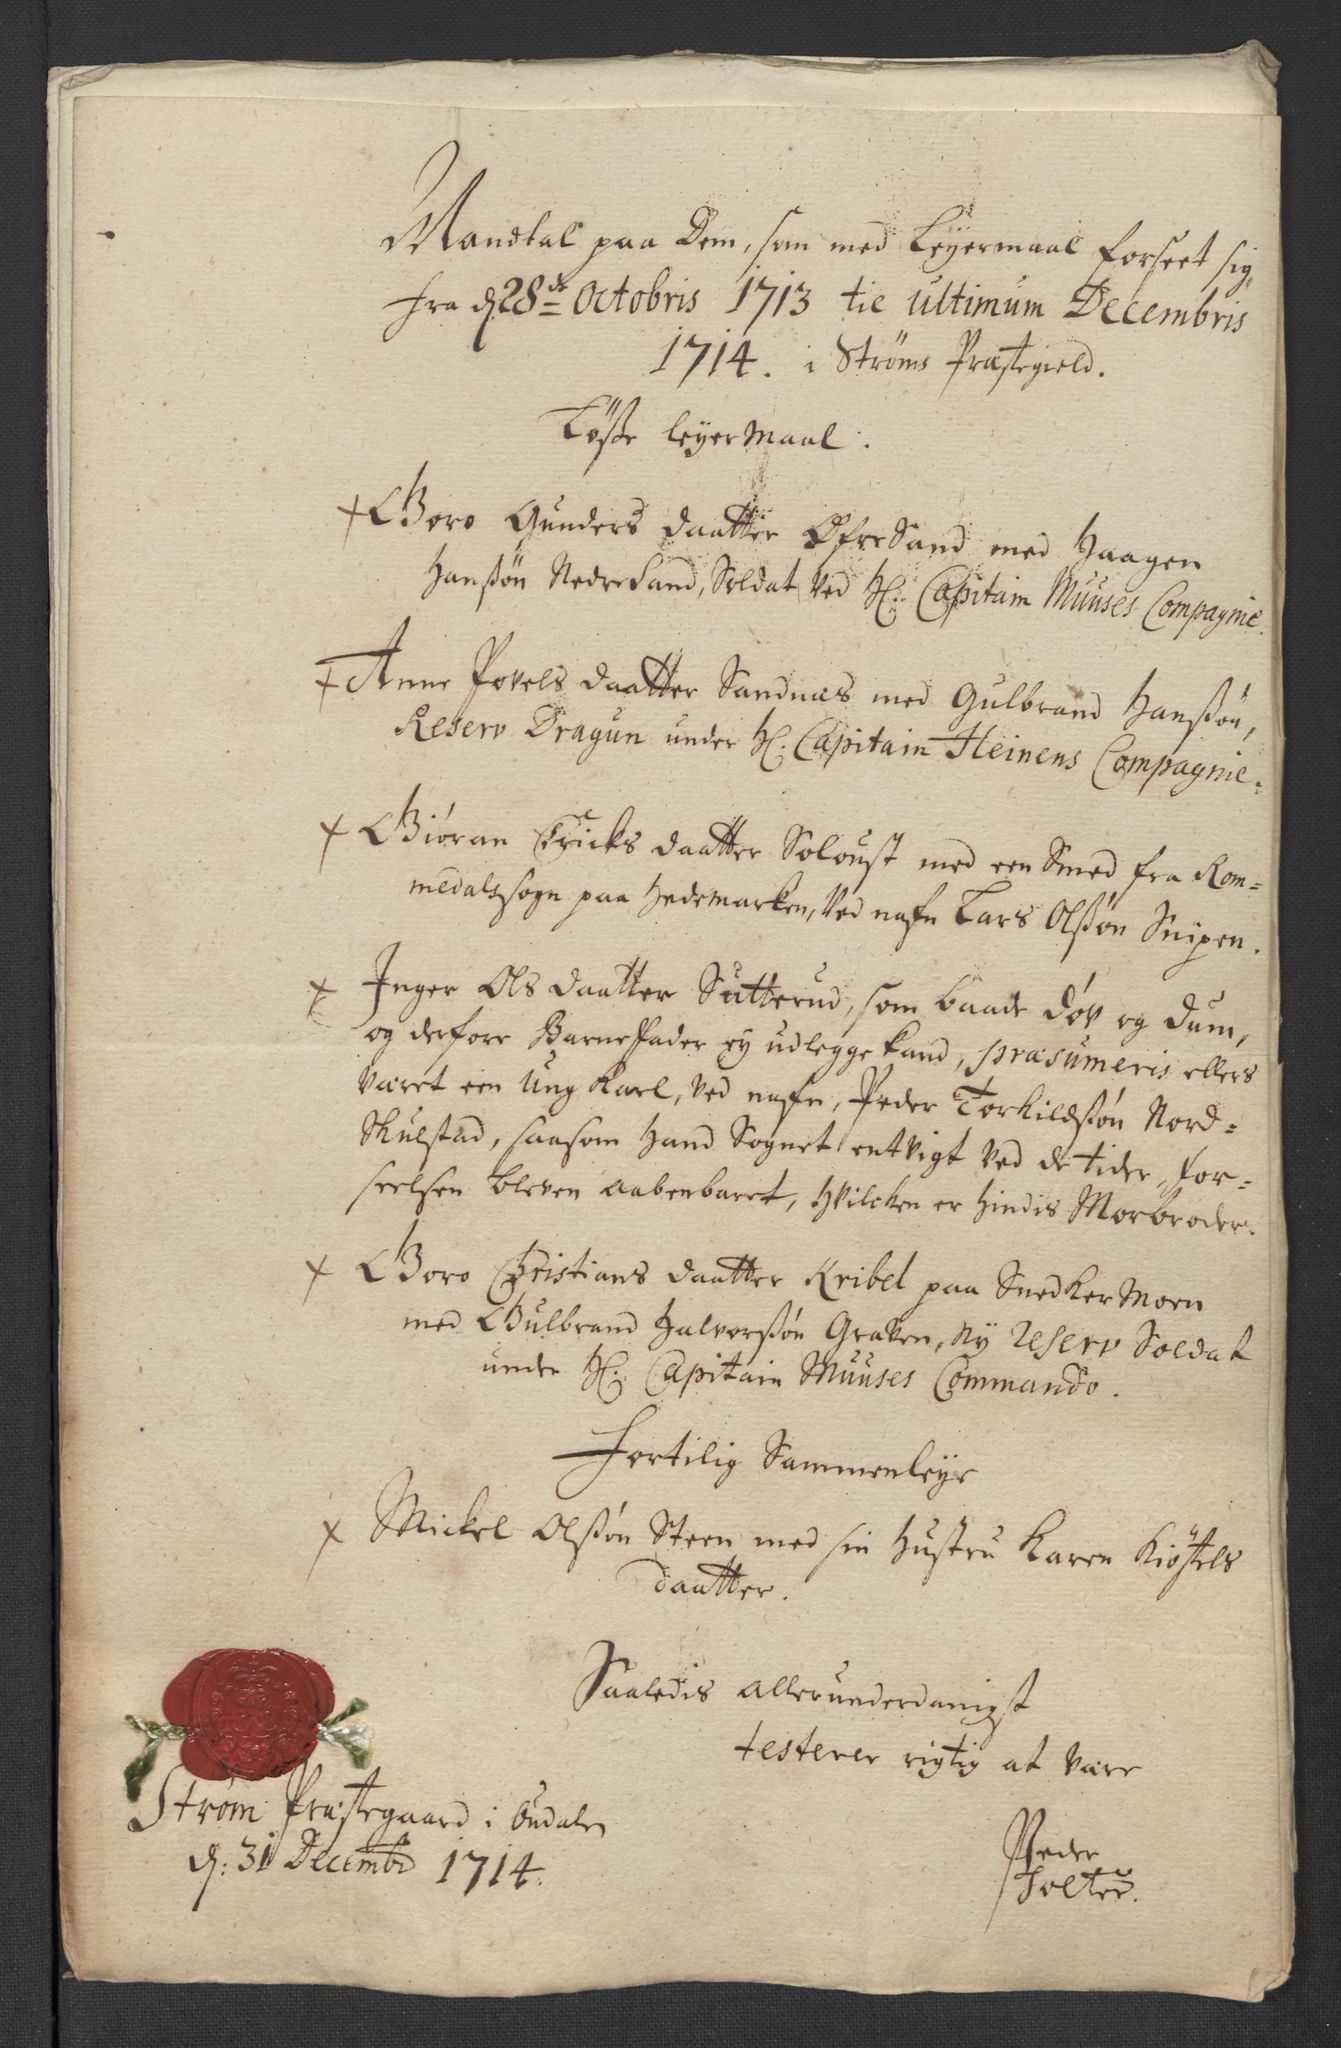 Mandtal paa Dem, som med Leyermaal forseet sig,
fra d. 28de Octobris 1713 til ultimum Decembris
1714. i Strøms Præstegield.
Løse leyermaal.
+ Goro Gunders daatter Øfre Sand med Haagen
Hanssøn Nedre Sand, Soldat ved H. Capitain Muuses Compagnie.
+ Anne Povels daatter Sandnæs med Gulbrand Hanssøn,
Reserv Dragun under H. Capitain Heinens Compagnie.
+ Giøran Ericks daatter Soloust med een Smed fra Rom=
medals sogn paa Hedemarken, ved nafn Lars Olssøn Snipen.
+ Inger Ols daatter Sutterud, som baade døv og dum,
og derfore Barnefader ey udlegge kand, præsumeris ellers
været een ung Karl, ved nafn, Peder Torkildssøn Nord=
Skulstad, saasom hand Sognet entvigt ved de tider, for=
seelsen bleven aabenbaret, hvilcken er hindis Morbroder.
+ Goro Christians daatter Kribel paa Snedkermoen
med Gulbrand Halvorssøn Graven, Ny reserv Soldat
under H. Capitain Muuses Commando.
Fortilig Sammenleye
+ Mickel Olssøn Steen med sin Hustru Karen Kiøstels
daatter.
Saaledis allerunderdanigst
testerer rigtig at være
Strøm Præstegaard i Oudalen
d: 31 Decembr 1714.
Peder
Holter.